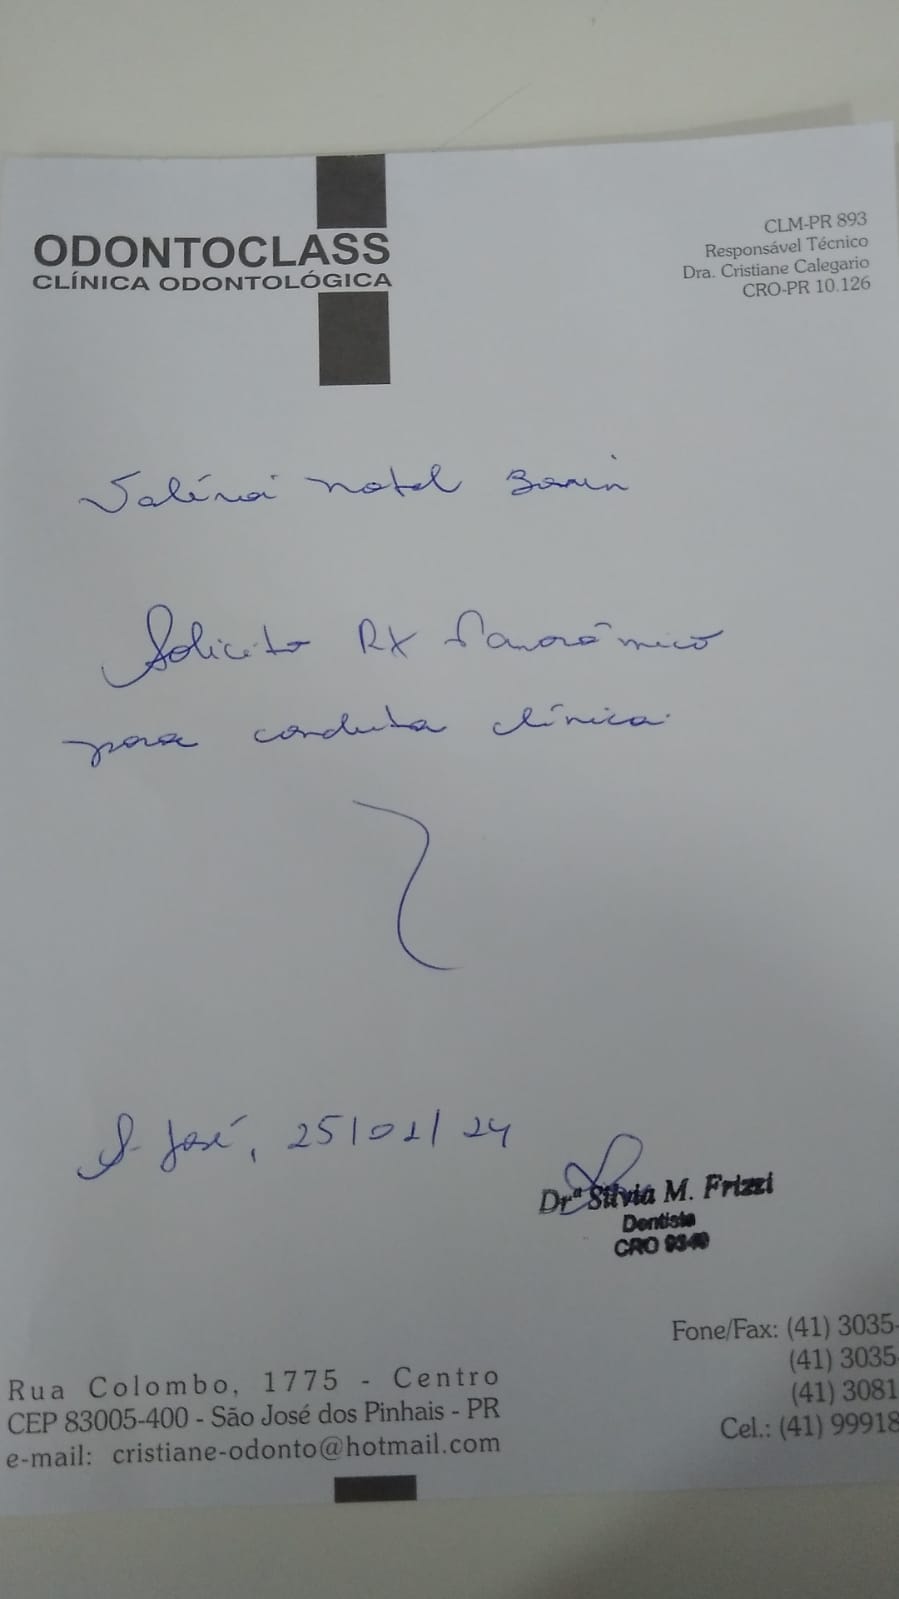 ODONTOCLASS
CLÍNICA ODONTOLÓGICA
CLM-PR 893
Responsável Técnico
Dra. Cristiane Calegario
CRO-PR 10.126
Natel
Solicito RX Panorâmico
para conduta clínica.
S. José, 25/01/24
Drª Silvia M. Frizzi
Dentista
CRO
Fone/Fax: (41) 3035-
(41) 3035
(41) 3081
Cel.: (41) 99918
Rua Colombo, 1775 - Centro
CEP 83005-400 - São José dos Pinhais - PR
e-mail: cristiane-odonto@hotmail.com